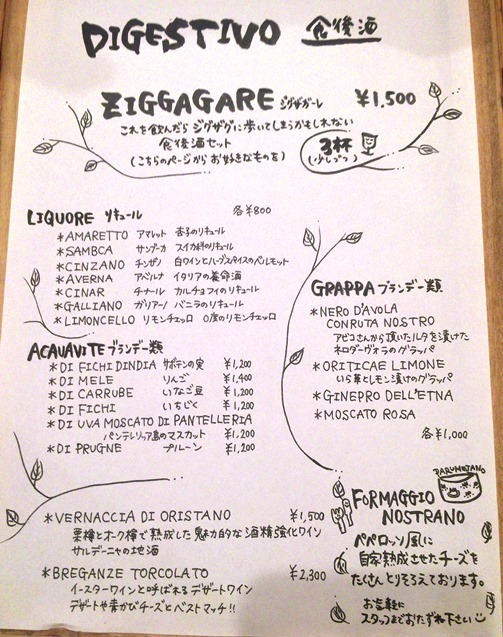 DIGESTIVO 食後酒
ZIGGAGARE ジグザガーレ ¥1,500
これを飲んだら ジグザグに歩いてしまうかもしれない
食後酒セット
(こちらのページから お好きなものを)
3杯
(少しづつ)
LIQUORE リキュール 各¥800
*AMARETTO アマレット 杏子のリキュール
*SAMBCA サンブーカ スイカ科のリキュール
*CINZANO チンザノ 白ワインとハーブスパイスのベルモット
*AVERNA アベルナ イタリアの養命酒
*CINAR チナール カルチョフィのリキュール
*GALLIANO ガリアーノ バニラのリキュール
*LIMONCELLO リモンチェッロ 0度のリモンチェッロ
ACUAVITE ブランデー類
*DI FICHI DINDIA サボテンの実 ¥1,200
*DI MELE りんご ¥1,400
*DI CARRUBE いなご豆 ¥1,200
*DI FICHI いちじく ¥1,200
*DI UVA MOSCATO DI PANTELLERIA
パンテレリア島のマスカット ¥1,200
*DI PRUGNE プルーン ¥1,200
GRAPPA ブランデー類
*NERO D'AVOLA
CONRUTA NOSTRO
アビコさんから頂いたルタを漬けた
ネロダーヴォラのグラッパ
*ORITICAE LIMONE
いら草とレモン漬けのグラッパ
*GINEPRO DELL'ETNA
*MOSCATO ROSA
各¥1,000
*VERNACCIA DI ORISTANO ¥1,500
栗樽とオーク樽で熟成した魅力的な酒精強化ワイン
サルデーニャの地酒
*BREGANZE TORCOLATO ¥2,300
イースターワインと呼ばれるデザートワイン
デザートや青かびチーズとベストマッチ!!
FORMAGGIO
NOSTRANO
ペペロッソ風に
自家熟成させたチーズを
たくさんとりそろえております。
お気軽に
スタッフまでおたずね下さい